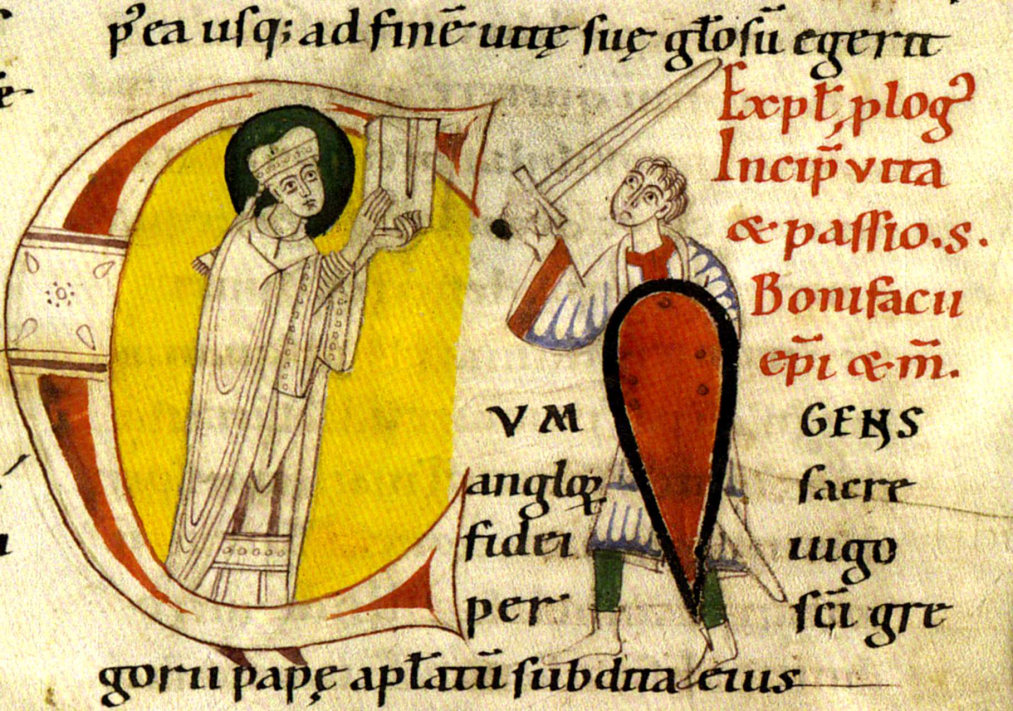 p̓ea usq; ad finē uitę suę gl̄osū egerit
Expl̄t plog̓
Incip̄ vita
& passio .s.
Bonifacii
ep̄i & m̄.
CVM GENS
angloꝝ sacre
fidei iugo
per sc̄i gre
gorii papę apl̄atū subdita eius